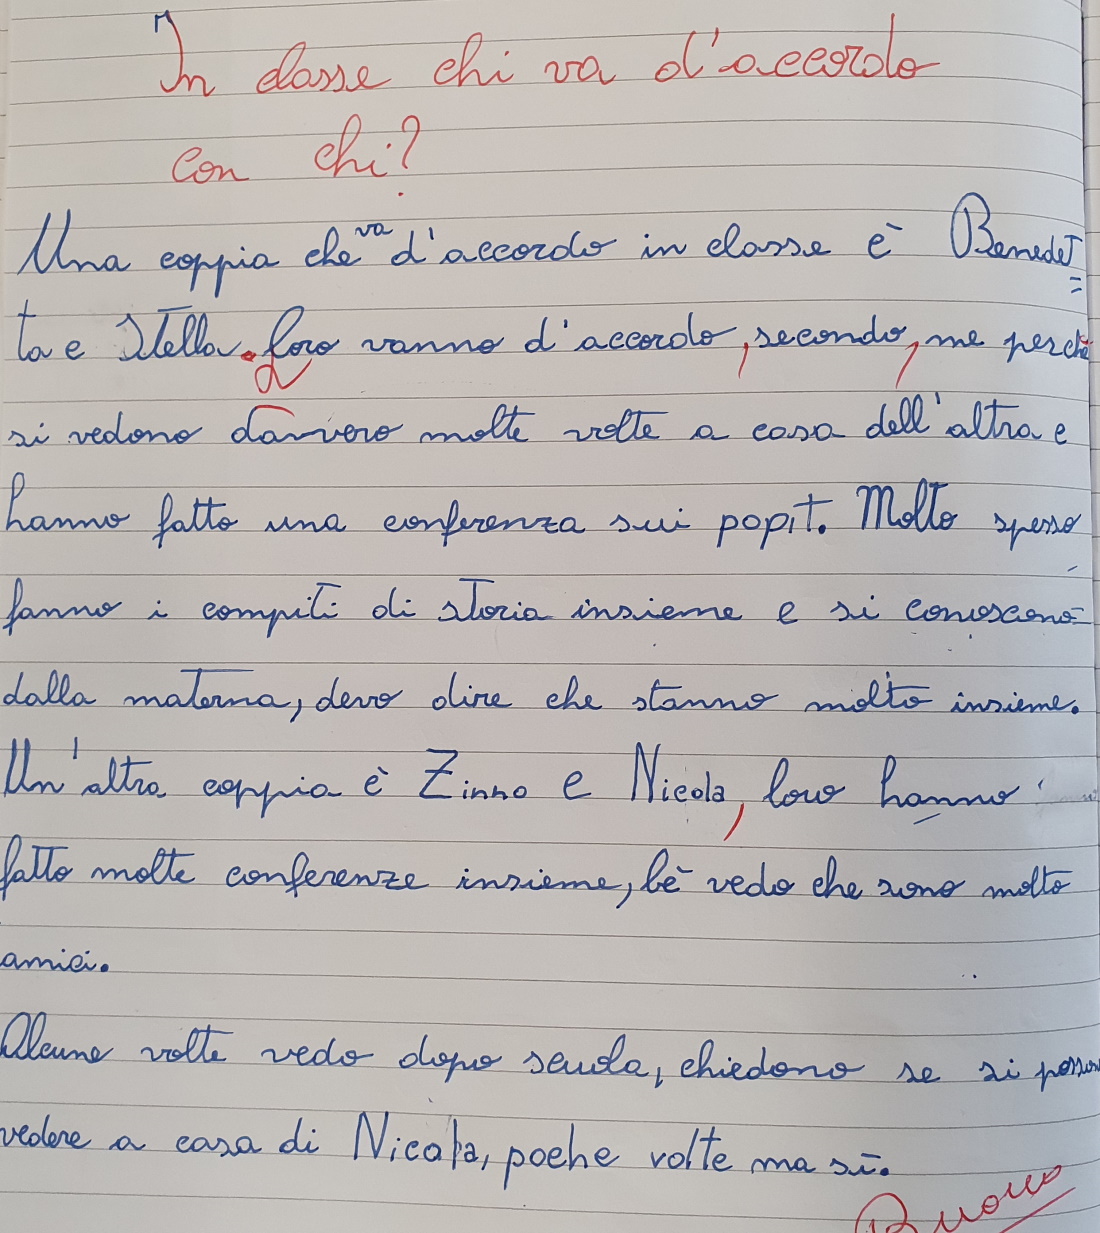 In classe chi va d'accordo
con chi?
Una coppia che va d'accordo in classe è Benedet=
ta e Stella. Loro vanno d'accordo, secondo, me perchè
si vedono davvero molte volte a casa dell'altra e
hanno fatto una conferenza sui popit. Molto spesso
fanno i compiti di storia insieme e si conoscono
dalla materna, devo dire che stanno molto insieme.
Un'altra coppia è Zinno e Nicola, loro hanno
fatto molte conferenze insieme, bè vedo che sono molto
amici.
Alcune volte vedo dopo scuola, chiedono se si posson
vedere a casa di Nicola, poche volte ma sì.
Buono